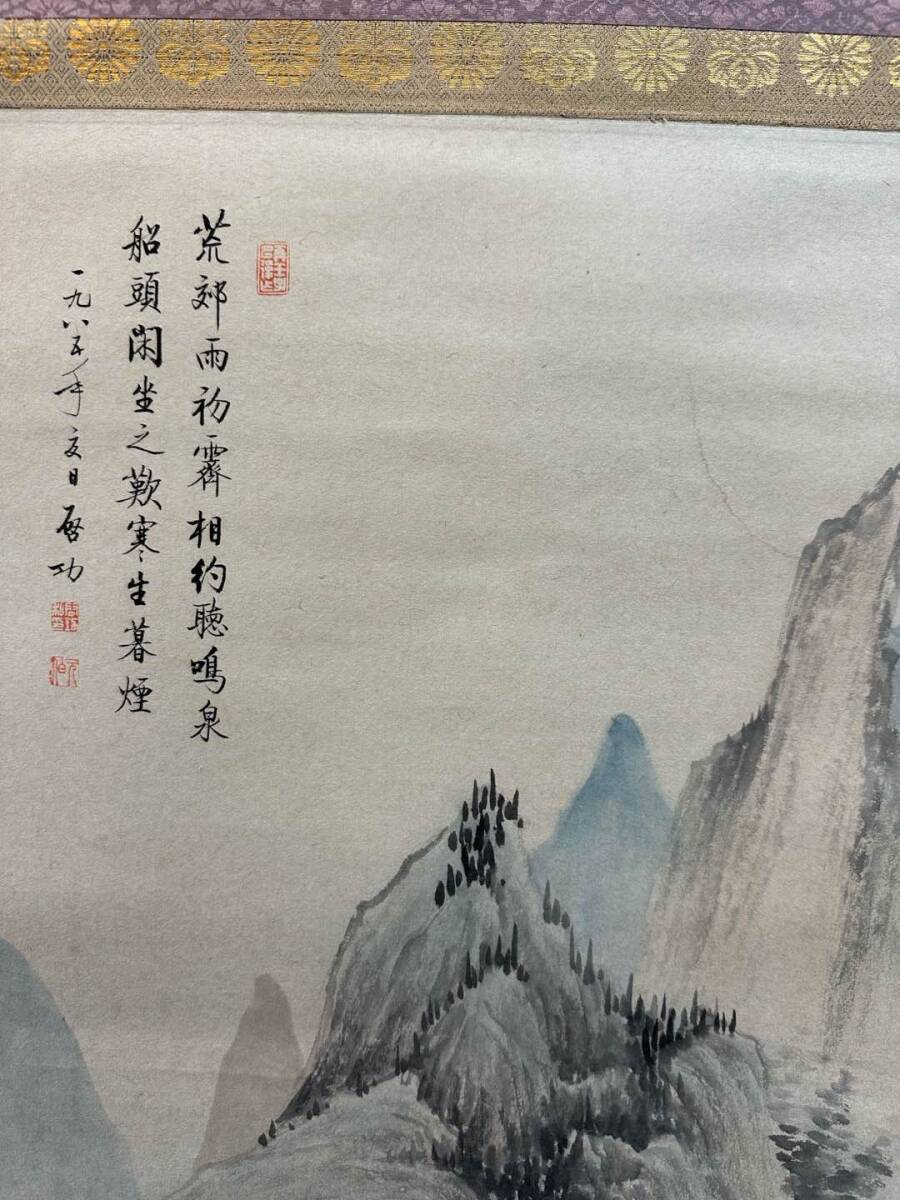 荒郊雨初霽相約聽鳴泉
船頭閑坐之歎寒生暮煙
一九八五年夏日啓功